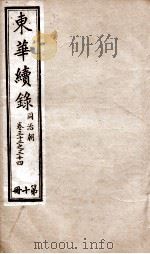 東華續錄
同治朝
卷三十三之三十四
第十冊